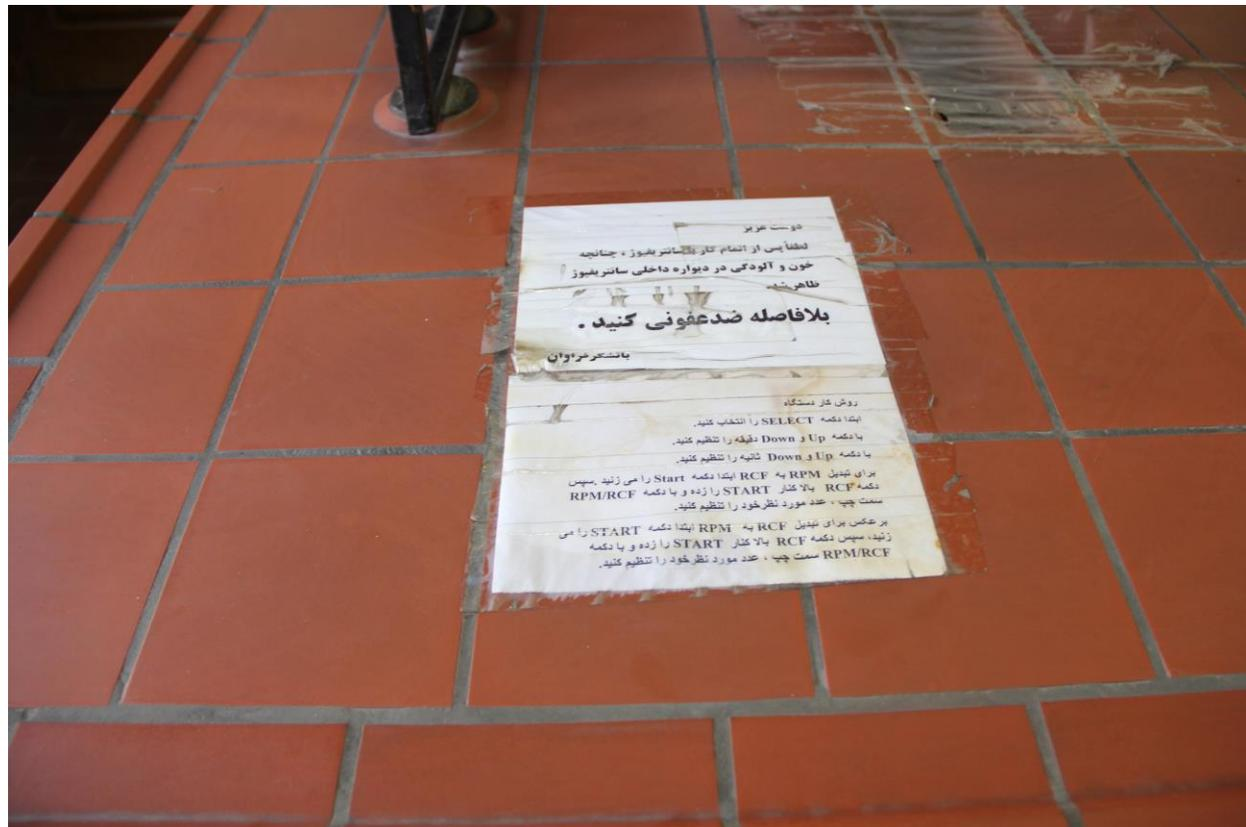 دوست عزیز
لطفاً پس از اتمام کار با سانتریفیوژ ، چنانچه
خون و آلودگی در دیواره داخلی سانتریفیوژ
ظاهر شد
بلافاصله ضدعفونی کنید .
باتشکرفراوان
روش کار دستگاه
ابتدا دکمه SELECT را انتخاب کنید.
با دکمه Up و Down دقیقه را تنظیم کنید.
با دکمه Up و Down ثانیه را تنظیم کنید.
برای تبدیل RPM به RCF ابتدا دکمه Start را می زنید .سپس
دکمه RCF بالا کنار START را زده و با دکمه RPM/RCF
سمت چپ ، عدد مورد نظر خود را تنظیم کنید.
برعکس برای تبدیل RCF به RPM ابتدا دکمه START را می
زنید، سپس دکمه RCF بالا کنار START را زده و با دکمه
RPM/RCF سمت چپ ، عدد مورد نظر خود را تنظیم کنید.